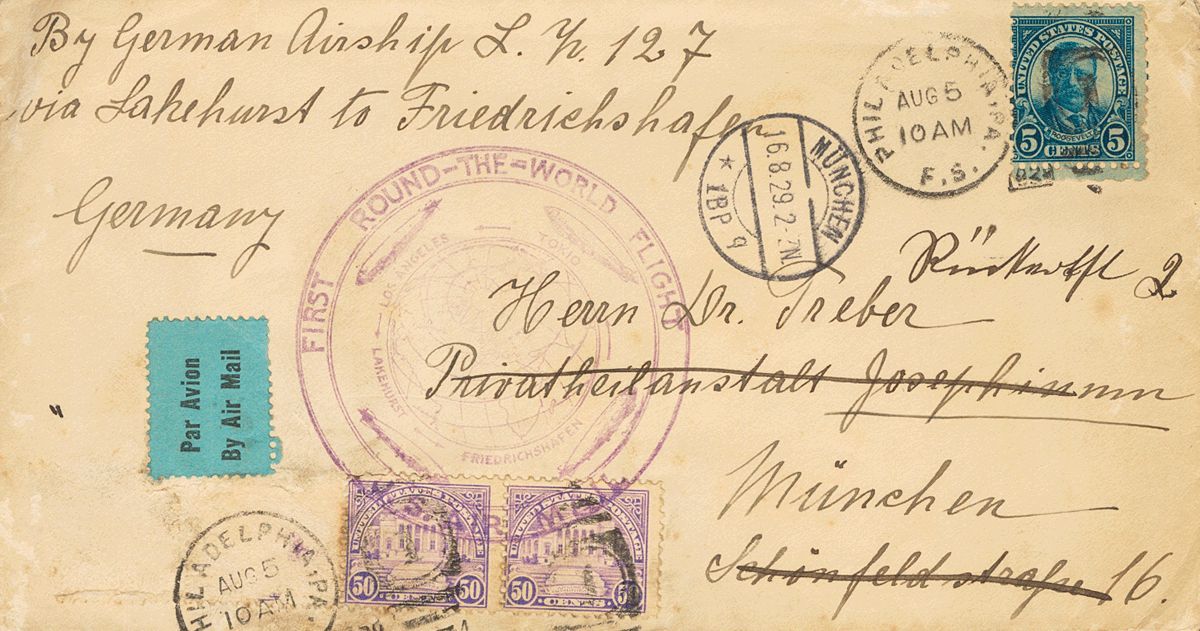 By German Airship L. Z. 127
via Lakehurst to Friedrichshafen
Germany
PHILADELPHIA, PA.
AUG 5
10 AM
F.S.
UNITED STATES POSTAGE
ROOSEVELT
5 CENTS 5
MÜNCHEN
16.8.29.2-3N.
* 1BP 9
FIRST ROUND-THE-WORLD FLIGHT
LOS ANGELES
TOKIO
LAKEHURST
FRIEDRICHSHAFEN
U.S. AIR MAIL
Herrn Dr. Treber
Privatheilanstalt Josephinum
München
Schönfeldstraße 16.
Par Avion
By Air Mail
UNITED STATES POSTAGE
50 CENTS 50
UNITED STATES POSTAGE
50 CENTS 50
PHILADELPHIA, PA.
AUG 5
10 AM